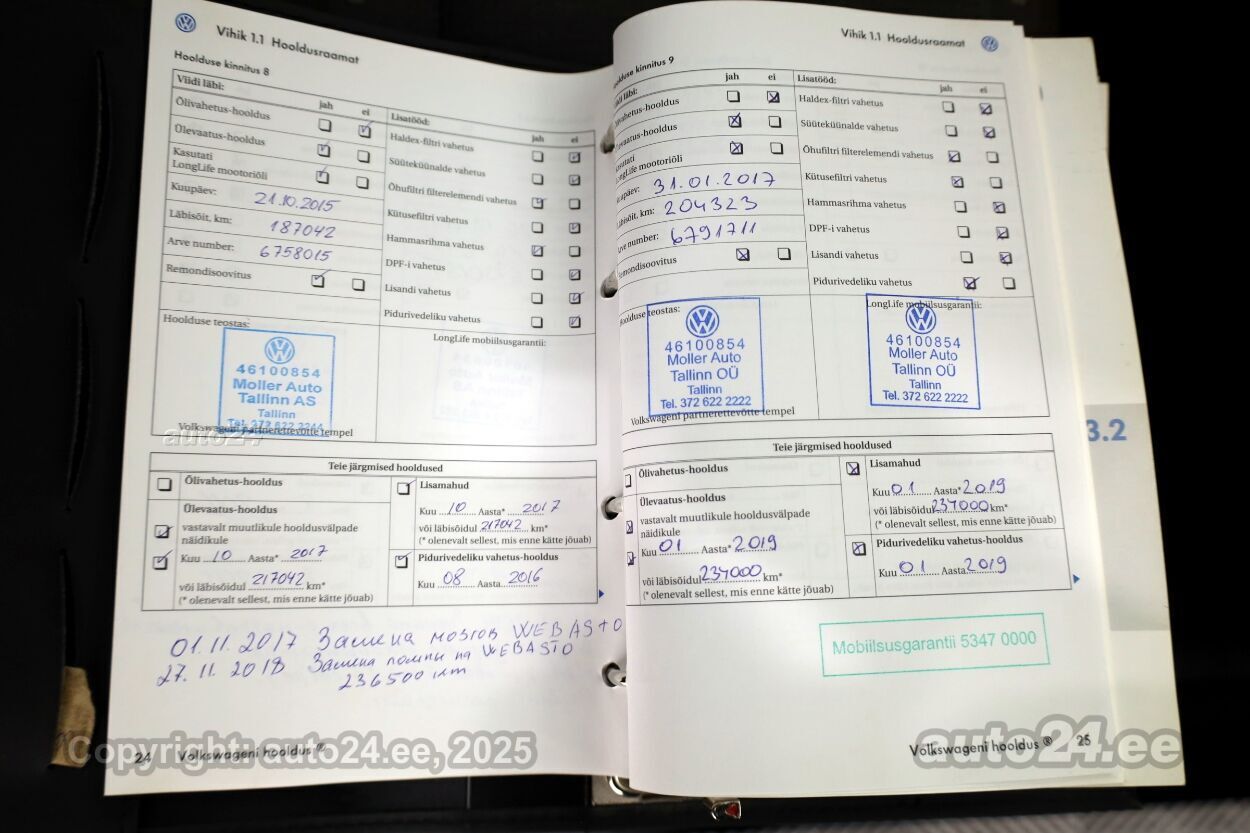 Vihik 1.1 Hooldusraamat
Hoolduse kinnitus 8
Viidi läbi:
jah ei
Õlivahetus-hooldus
Ülevaatus-hooldus
Kasutati
LongLife mootoriõli
Kuupäev: 21.10.2015
Läbisõit, km: 187042
Arve number: 6758015
Remondisoovitus
Lisatööd:
jah ei
Haldex-filtri vahetus
Süüteküünalde vahetus
Õhufiltri filterelemendi vahetus
Kütusefiltri vahetus
Hammasrihma vahetus
DPF-i vahetus
Lisandi vahetus
Pidurivedeliku vahetus
Hoolduse teostas:
46100854
Moller Auto
Tallinn AS
Tallinn
Tel. 372 622 2244
Volkswageni partnerettevõtte tempel
LongLife mobiilsusgarantii:
Teie järgmised hooldused
Õlivahetus-hooldus
Ülevaatus-hooldus
vastavalt muutlikule hooldusvälpade
näidikule
Kuu 10 Aasta* 2017
või läbisõidul 217042 km*
(* olenevalt sellest, mis enne kätte jõuab)
Lisamahud
Kuu 10 Aasta* 2017
või läbisõidul 217042 km*
(* olenevalt sellest, mis enne kätte jõuab)
Pidurivedeliku vahetus-hooldus
Kuu 08 Aasta 2016
01.11.2017 Замена мозгов WEBASTO
27.11.2018 Замена помпы на WEBASTO
236500 км
24 Volkswageni hooldus ®
Vihik 1.1 Hooldusraamat
Hoolduse kinnitus 9
läbi:
jah ei
Õlivahetus-hooldus
Ülevaatus-hooldus
Kasutati
LongLife mootoriõli
Kuupäev: 31.01.2017
Läbisõit, km: 204323
Arve number: 6791711
Remondisoovitus
Lisatööd:
jah ei
Haldex-filtri vahetus
Süüteküünalde vahetus
Õhufiltri filterelemendi vahetus
Kütusefiltri vahetus
Hammasrihma vahetus
DPF-i vahetus
Lisandi vahetus
Pidurivedeliku vahetus
Hoolduse teostas:
46100854
Moller Auto
Tallinn OÜ
Tallinn
Tel. 372 622 2222
Volkswageni partnerettevõtte tempel
LongLife mobiilsusgarantii:
46100854
Moller Auto
Tallinn OÜ
Tallinn
Tel. 372 622 2222
Teie järgmised hooldused
Õlivahetus-hooldus
Ülevaatus-hooldus
vastavalt muutlikule hooldusvälpade
näidikule
Kuu 01 Aasta* 2019
või läbisõidul 234000 km*
(* olenevalt sellest, mis enne kätte jõuab)
Lisamahud
Kuu 01 Aasta* 2019
või läbisõidul 234000 km*
(* olenevalt sellest, mis enne kätte jõuab)
Pidurivedeliku vahetus-hooldus
Kuu 01 Aasta 2019
Mobiilsusgarantii 5347 0000
Volkswageni hooldus ® 25
3.2
auto24
Copyright: auto24.ee, 2025
auto24.ee